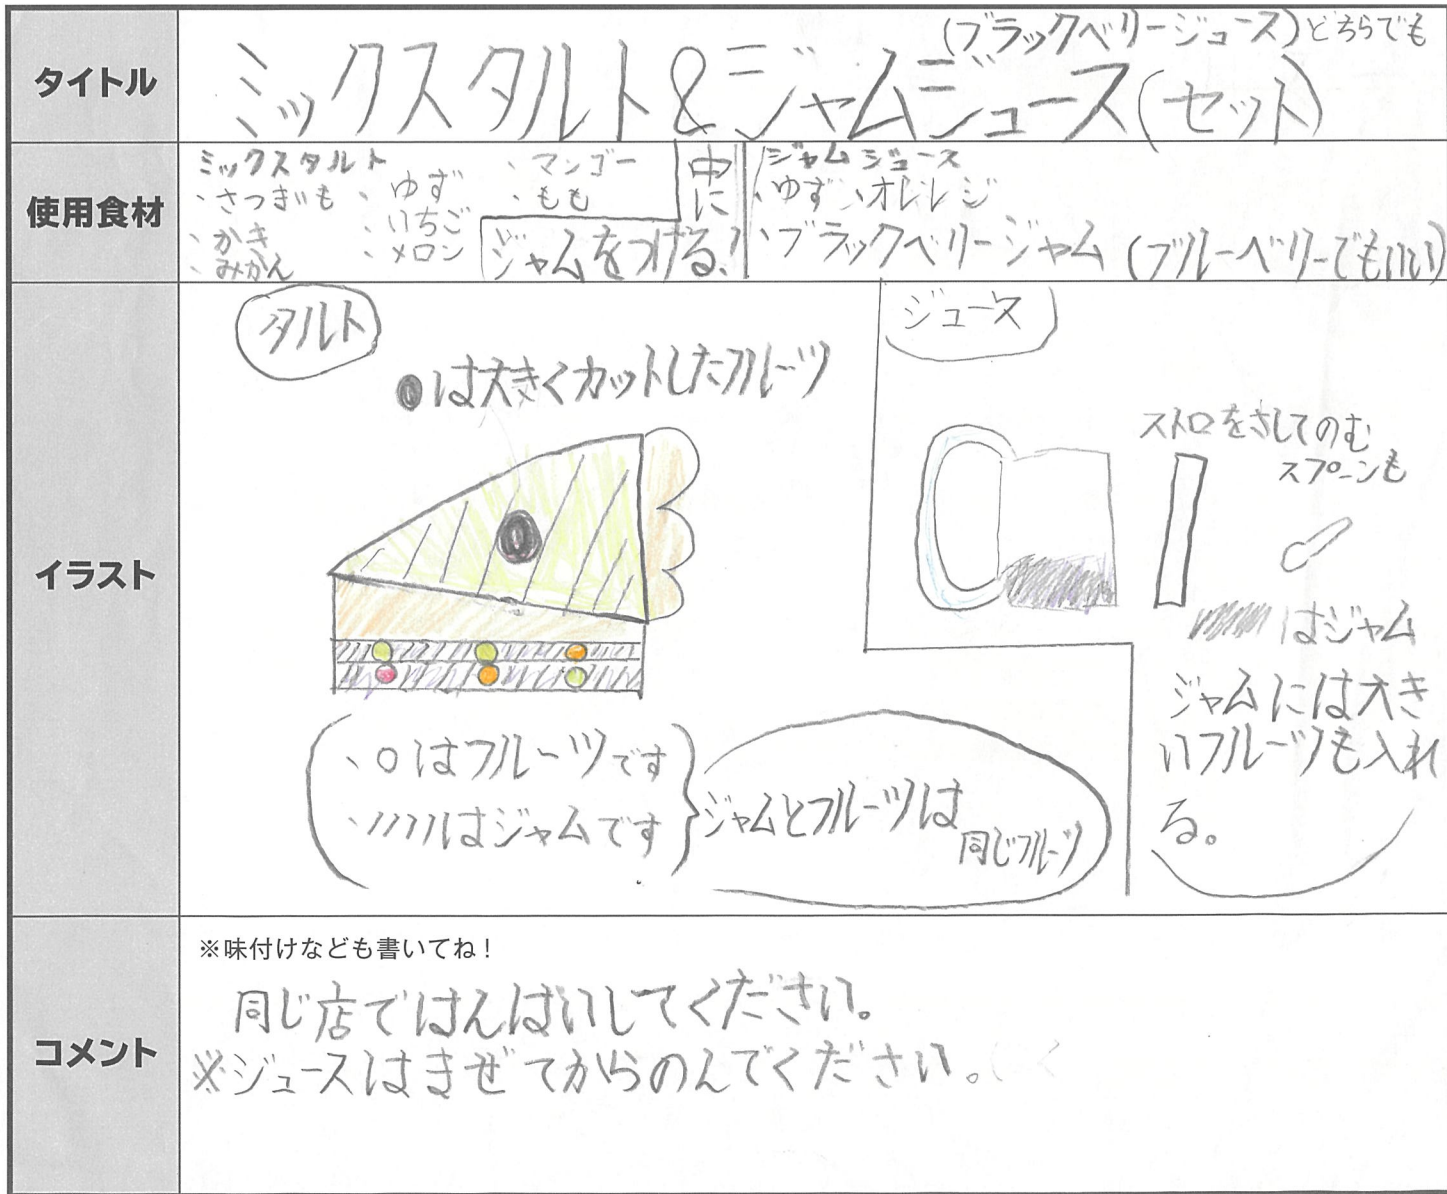 タイトル
(ブラックベリージュース)どちらでも
ミックスタルト&ジャムジュース(セット)
使用食材
ミックスタルト
・さつまいも
・かき
・みかん
・ゆず
・いちご
・メロン
・マンゴー
・もも
中に
ジャムをつける!
ジャムジュース
・ゆず ・オレンジ
・ブラックベリージャム (ブルーベリーでもいい)
イラスト
タルト
は大きくカットしたフルーツ
・○はフルーツです
・////はジャムです
ジャムとフルーツは
同じフルーツ
ジュース
ストロをさしてのむ
スプーンも
はジャム
ジャムには大き
いフルーツも入れ
る。
コメント
※味付けなども書いてね!
同じ店ではんばいしてください。
※ジュースはまぜてからのんでください。